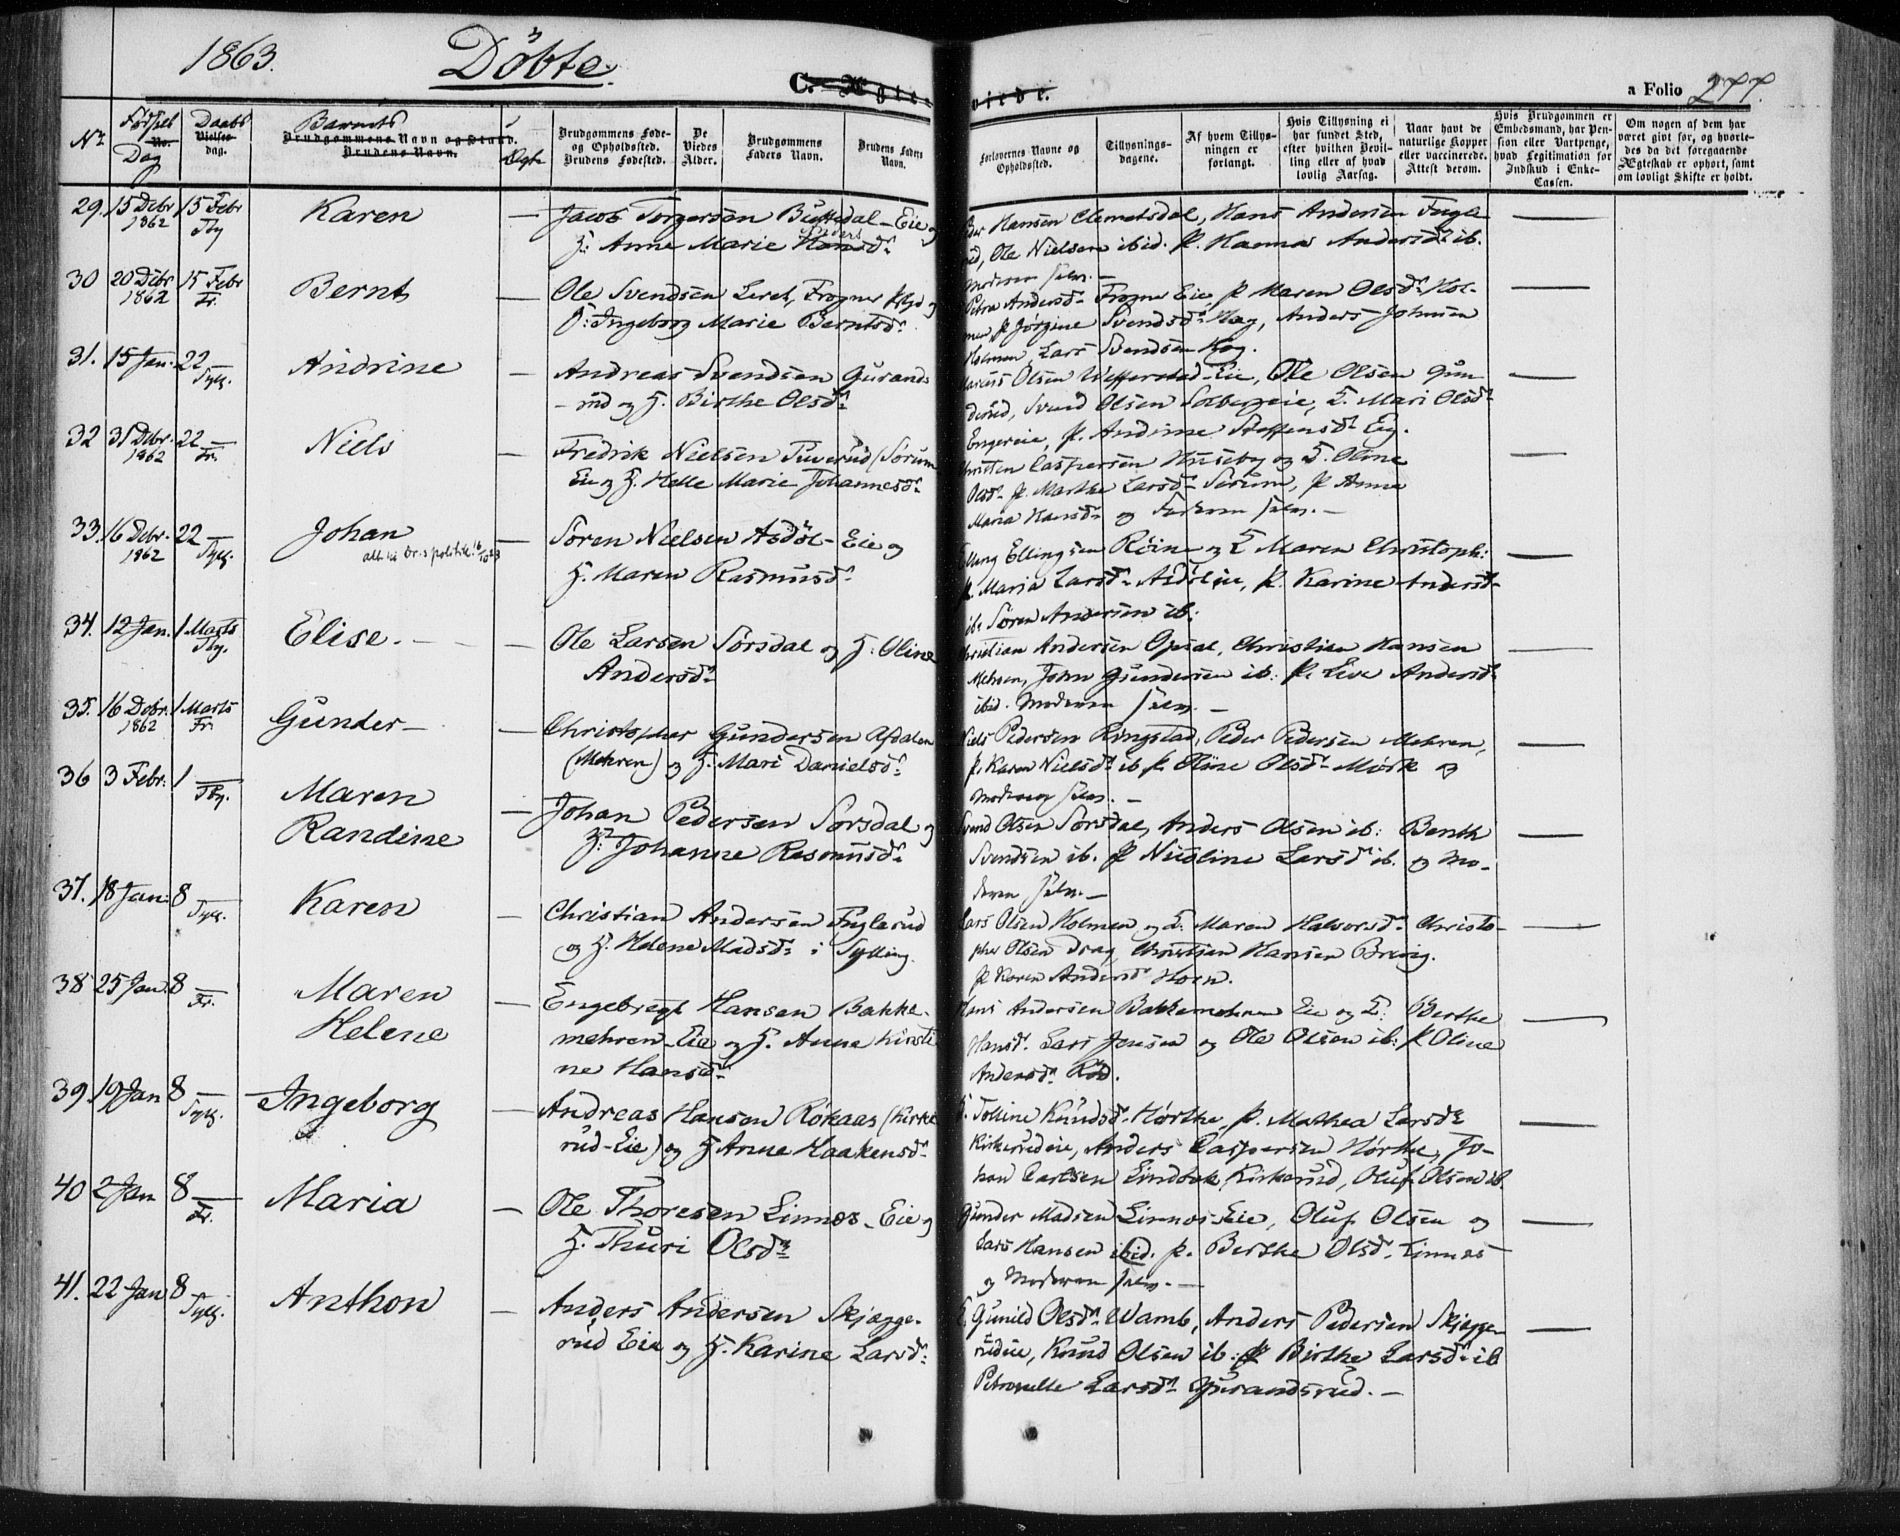 1863.
Döbte.
C. Ægteviede.
a Folio 277.
Nr.
Fødsels Dag
Daabs dag.
Barnets
Brudgommens Navn og Stand.
Brudens Navn.
Ægte
Brudgommens Føde- og Opholdssted. Brudens Fødested.
De Viedes Alder.
Brudgommens Faders Navn.
Brudens Faders Navn.
Forlovernes Navne og Opholdssted.
Tillysnings-dagene.
Af hvem Tillysningen er forlangt.
Hvis Tillysning ei har fundet Sted, efter hvilken Bevilling eller af hvad lovlig Aarsag.
Naar havt de naturlige Kopper eller vaccinerede. Attest derom.
Hvis Brudgommen er Embedsmand, har Pension eller Vartpenge, hvad Legitimation for Indskud i Enke-Cassen.
Om nogen af dem har været gift før, og hvorledes da det foregaaende Ægteskab er ophørt, samt om lovligt Skifte er holdt.
29. 15 Debr 1862 15 Febr Karen — Jacob Torgersen Eie og
H: Anne Marie Andersd.
Hansen Clemetsdal, Hans Andersen Fugle-
rud, Ole Nielsen ibid. P. Hanna Andersd. ib.
Moderen selv. —
30 20 Debr 1862 15 Febr Fr. Bernt — Ole Svendsen Leret, Frogner og
H: Ingeborg Marie Berntsd.
Petra Andersd. Frogner Eie, P Maren Olsd. Hol-
men P Jörgine Svendsd. Hag, Anders Johnsen
Holmen, Lars Svendsen Hag.
31. 15 Jan. 22 — Sylg. Andrine — Andreas Svendsen Gurands-
rud og H. Birthe Olsd.
Olsen Eie, Ole Olsen Gun-
derud, Svend Olsen Solbergeie, E. Mari Olsd.
Engereie, P. Andrine Steffensd. Eeg.
32 31 Debr. 1862 22 — Fr. Niels — Fredrik Nielsen Tuverud (Sörum
Eie og H. Helle Marie Johannesd.
Christen Caspersen Huseby og E. Oline
Olsd. P. Marthe Larsd. Sörum, P Anne
Maria Hansd. og Faderen selv. —
33. 16 Debr. 1862 22 — Sylg. Johan — Sören Nielsen Asdöl-Eie og
H. Maren Rasmusd.
Elling Ellingsen Röine og E Maren Christoph:
P. Maria Larsd. Asdöleie, P. Karine Andersd.
ib. Sören Andersen ib.
34. 12 Jan. 1 Marts Elise. — Ole Larsen Sörsdal og H: Oline
Andersd.
Christian Andersen Opsal, Christian Hansen
Mehren, John Gundersen ib: P. Live Andersd.
ibid. Moderen selv. —
35. 16 Debr. 1862 1 Marts Fr. Gunder — Christopher Gundersen Afdalen
(Mehren) og H. Mari Danielsd.
Niels Pedersen Ringstad, Peder Pedersen Mehren,
P. Karen Nielsd. ib P. Oline Olsd. Mörk og
Moderen selv. —
36 3 Febr: 1 — Maren
Randine
— Johan Pedersen Sörsdal og
H: Johanne Rasmusd.
Svend Olsen Sörsdal, Anders Olsen ib: Benth
Svendsen ib. P Nicoline Larsd. ib. og Mo-
deren selv. —
37. 18 Jan: 8 — Sylg. Karen — Christian Andersen Fuglerud
og H. Helene Madsd. i Sylling.
Lars Olsen Holmen og E. Maren Halvorsd. Christo-
pher Olsen Drag, Christian Hansen Brevig.
P Karen Andersd. Horn.
38 25 Jan. 8 — Fr. Maren
Helene
— Engebregt Hansen Bakke-
mehren-Eie og H. Anne Kirsti-
ne Hansd.
Hans Andersen Bakkemehren Eie og E: Berthe
Hansd. Lars Jensen og Ole Olsen ib: P Oline
Andersd. Röd.
39. 19 Jan 8 — Sylg. Ingeborg — Andreas Hansen Rökaas (Kirke-
rud-Eie) og H Anne Haakensd.
Tolline Knudsd. Hörthe, P. Mathea Larsd.
Kirkerudeie, Anders Caspersen Hörthe, Jo-
han Carlsen Kirkerud, Oluf Olsen ib.
40 2 Jan 8 — Fr. Maria — Ole Thoresen Linnes-Eie og
H. Thuri Olsd.
Gunder Madsen Linnes-Eie, Oluf Olsen og
Lars Hansen ibid. P. Berthe Olsd. Linnes
og Moderen selv. —
41. 22 Jan 8 — Sylg. Anthon — Anders Andersen Skjægge-
rud Eie og H. Karine Larsd.
E. Gunild Olsd. Wamb, Anders Pedersen Skjægge-
rudeie, Knud Olsen ib: P Birthe Larsd. ib
Petronelle Larsd. Gurandsrud. —